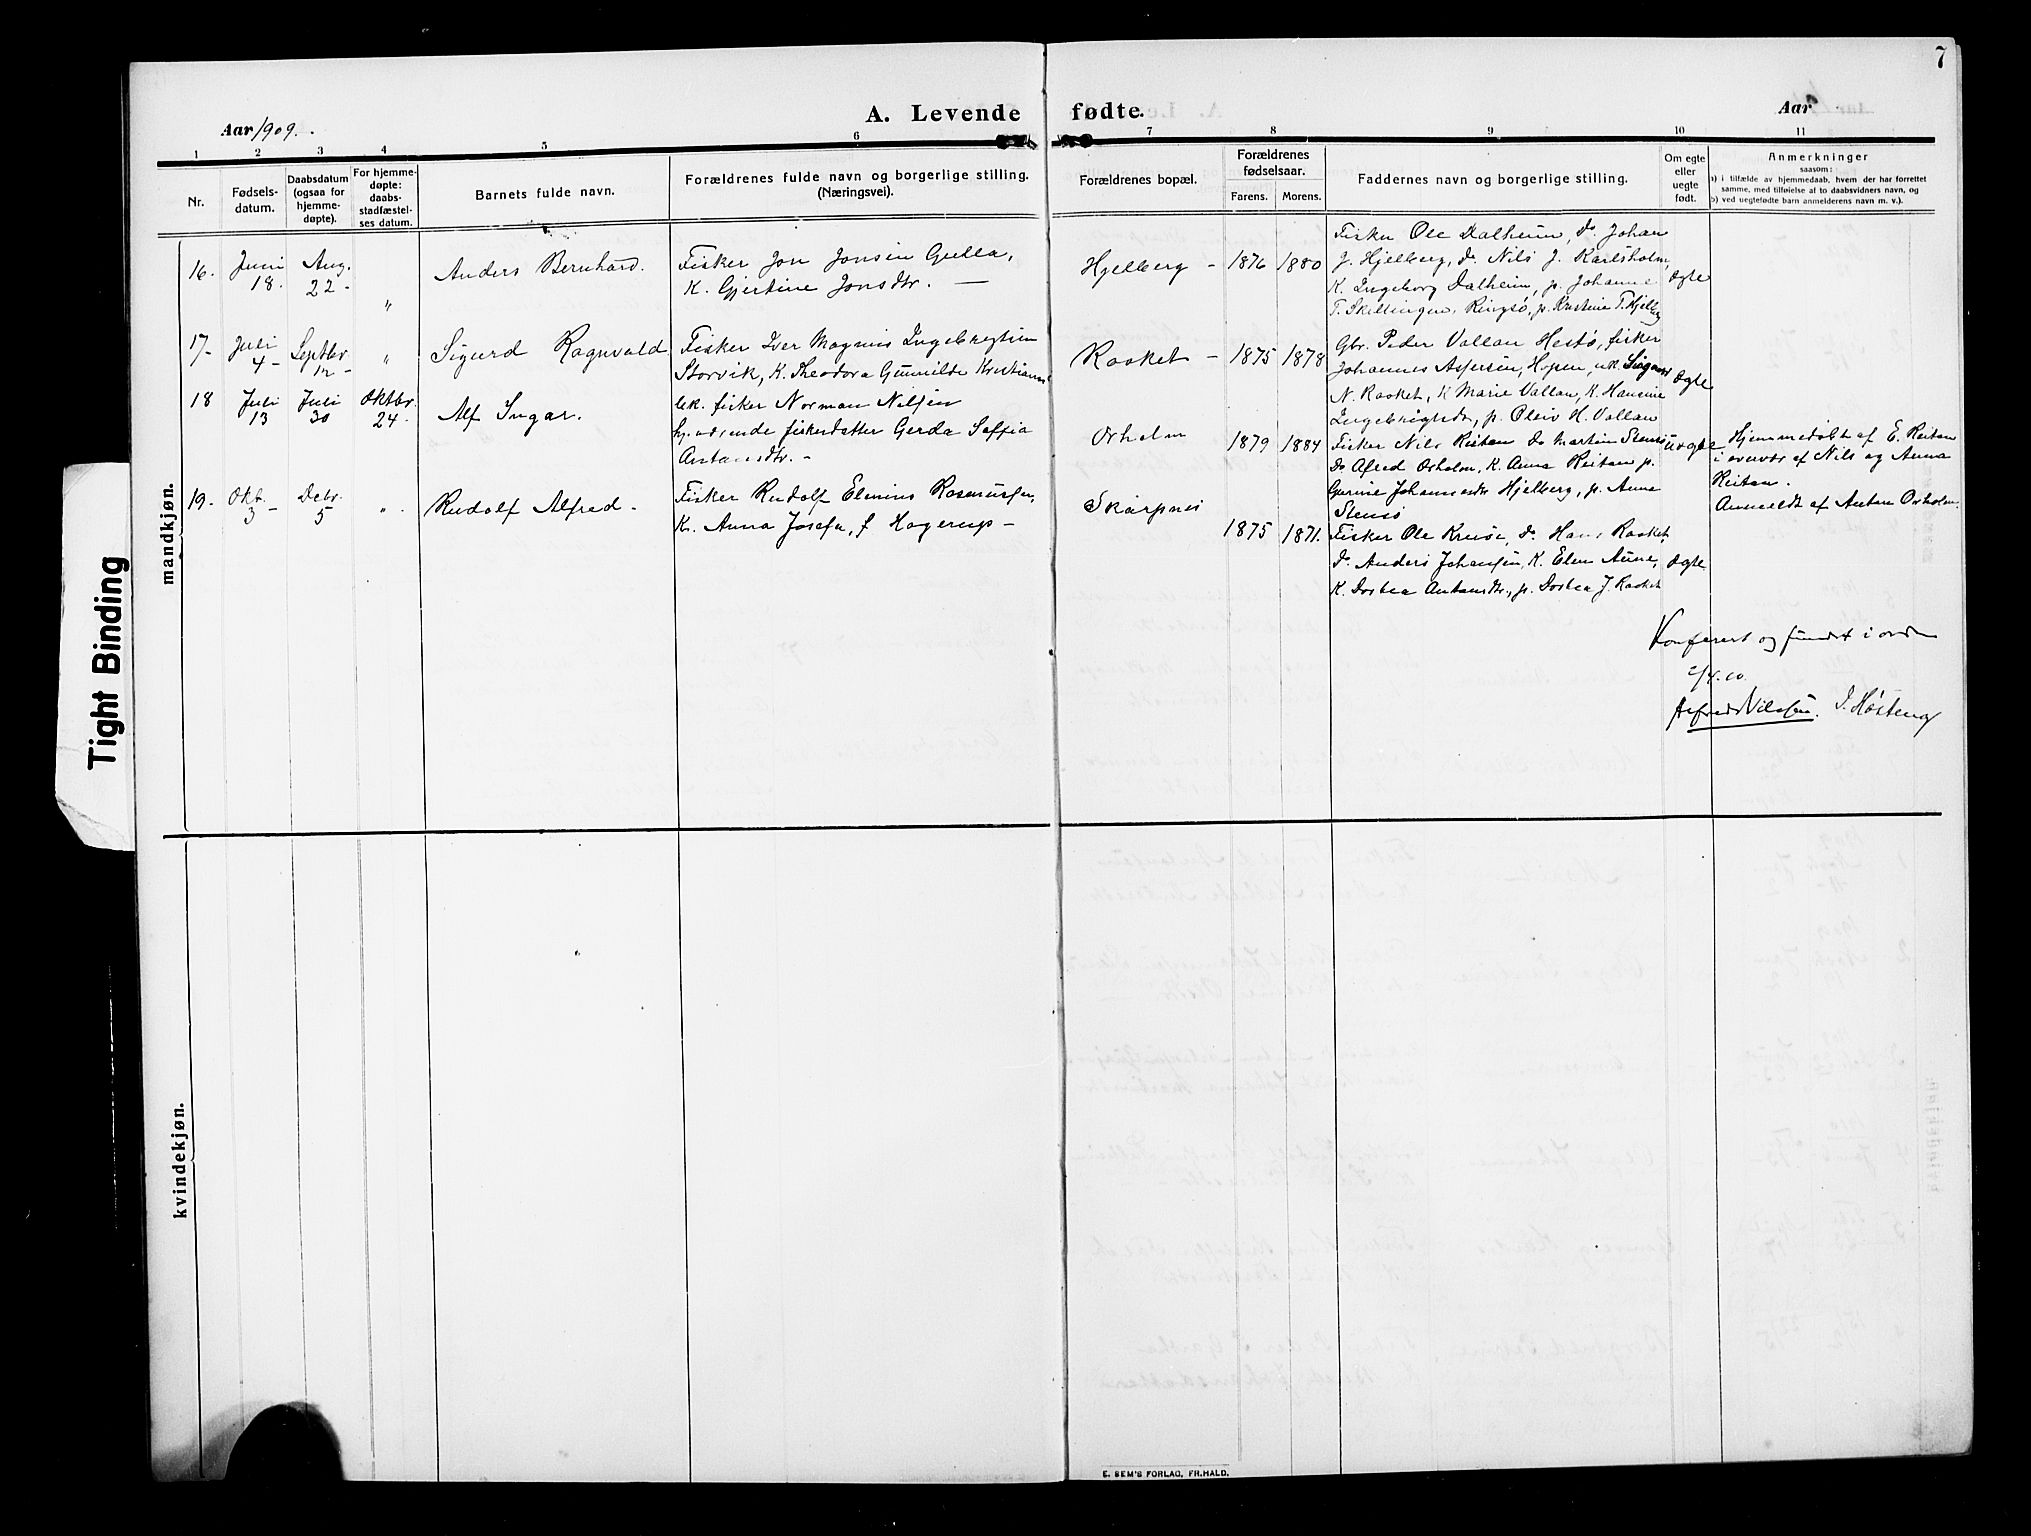 7
A. Levende fødte.
Aar 1909.
Aar
1 2 3 4 5 6 7 8 9 10 11
Nr.
Fødsels-
datum.
Daabsdatum
(ogsaa for
hjemme-
døpte).
For hjemme-
døpte:
daabs-
stadfæstel-
ses datum.
Barnets fulde navn.
Forældrenes fulde navn og borgerlige stilling.
(Næringsvei).
Forældrenes bopæl.
Forældrenes
fødselsaar.
Farens. Morens.
Faddernes navn og borgerlige stilling.
Om egte
eller
uegte
født.
Anmerkninger
saasom:
a) i tilfælde av hjemmedaab, hvem der har forrettet
samme, med tilføielse af to daabsvidners navn, og
b) ved uegtefødte barn anmelderens navn m. v.).
mandkjøn.
16.
Juni
18.
Aug.
22 -
"
Anders Bernhard.
Fisker Jon Jonsen Gulla,
K. Gjertine Jonsdtr. —
Hjelberg -
1876 1880
Fisker Ole Dalheim, Do Johan
J. Hjelberg, do Nils J. Karlsholm,
K. Ingeborg Dalheim, p. Johanne
T. Skellingen, Ringsø, p. Kristine T. Hjelberg
ægte
17-
Juli
4 -
Septbr
12 -
"
Sigurd Ragnvald
Fisker Iver Magnus Ingebregtsen
Storvik, K. Theodora Gunnilde Kristians
Rasket -
1875 1878
Gbr. Peder Vallan Hestø, fisker
Johannes Aspersen, Hopen, uk.
N. Rasket, K Marie Vallan, K. Hansine
p. Oleiv H. Vallan
ægte
18
Juli
13
Juli
30
Oktbr.
24.
Alf Ingar.
Uk. fisker Norman Nilsen
fiskerdatter Gerda Soffia
Antonsdtr. -
Orholm
1879 1884
Fisker Nils Reitan do Martin Stensø
Do Alfred Orholm, K. Anna Reitan p.
Gurine Johannesdtr Hjelberg, p. Anna
Stensø
uægte
Hjemmedøbt af E. Reitan
i overvær af Nils og Anna
Reitan.
Anmeldt af Anton Orholm.
19.
Okt.
3 -
Debr.
5
".
Rudolf Alfred -
Fisker Rudolf Elenius Rasmussen,
K. Anna Josefa, f Hagerup -
Skarpnes
1875 1871.
Fisker Ole Krusø, do Hans Rasket,
do Anders Johansen, K. Elen Aune,
K. Dortea Antonsdtr., p. Dortea J. Rasket
ægte
Konferert og fundet i orden
2/4.10.
Alfred Nilssen. J. Høsteng
kvindekjøn.
Tight Binding
E. SEM'S FORLAG, FR.HALD.